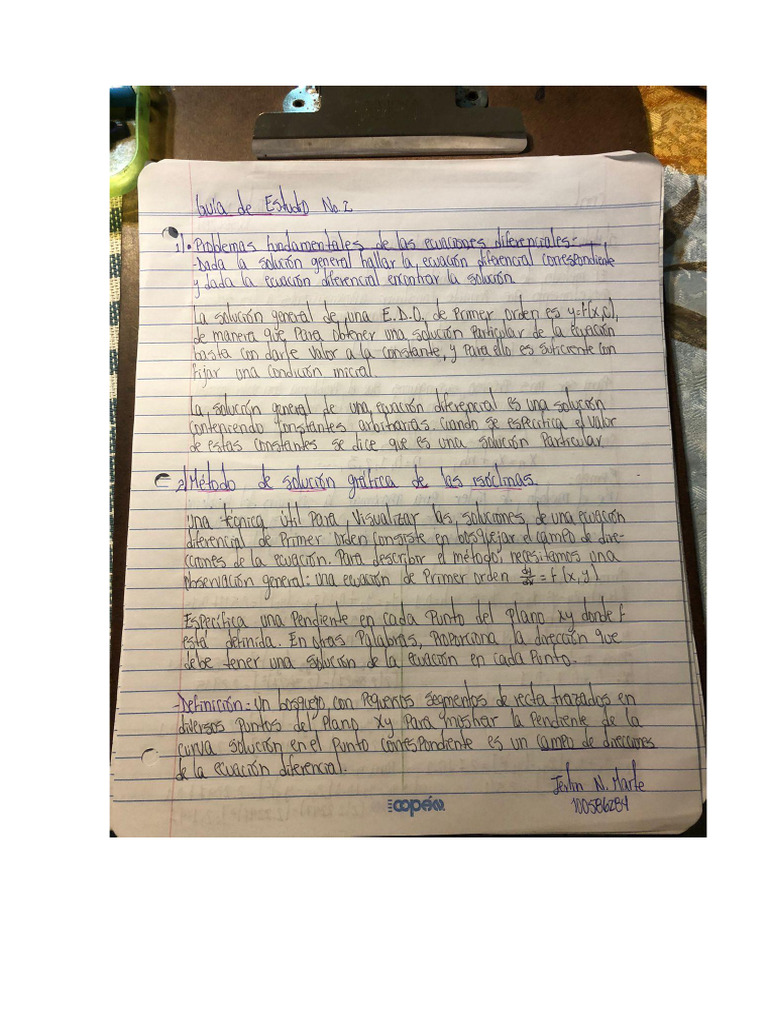 Guía de Estudio No. 2
1). Problemas fundamentales de las ecuaciones diferenciales:
-Dada la solución general hallar la ecuación diferencial correspondiente
y dada la ecuación diferencial encontrar la solución.
La solución general de una E.D.O. de Primer orden es y=f(x,c),
de manera que Para obtener una solución Particular de la ecuación
basta con darle valor a la constante, y Para ello es suficiente con
fijar una condición inicial.
La solución general de una ecuación diferencial es una solución
conteniendo constantes arbitrarias cuando se especifica el valor
de estas constantes se dice que es una solución Particular.
2) Método de solución gráfica de las isóclinas.
Una técnica útil Para Visualizar las soluciones de una ecuación
diferencial de Primer Orden consiste en bosquejar el campo de dire-
cciones de la ecuación. Para describir el método, necesitamos una
observación general: una ecuación de Primer orden dy/dx = f(x,y)
Específica una Pendiente en cada Punto del Plano xy donde f
está definida. En otras Palabras, Proporciona la dirección que
debe tener una solución de la ecuación en cada Punto.
-Definición: un bosquejo con Pequeños segmentos de recta trazados en
diversos Puntos del Plano xy Para mostrar la Pendiente de la
curva solución en el Punto correspondiente es un campo de direcciones
de la ecuación diferencial.
N. Marte
100586284
copán